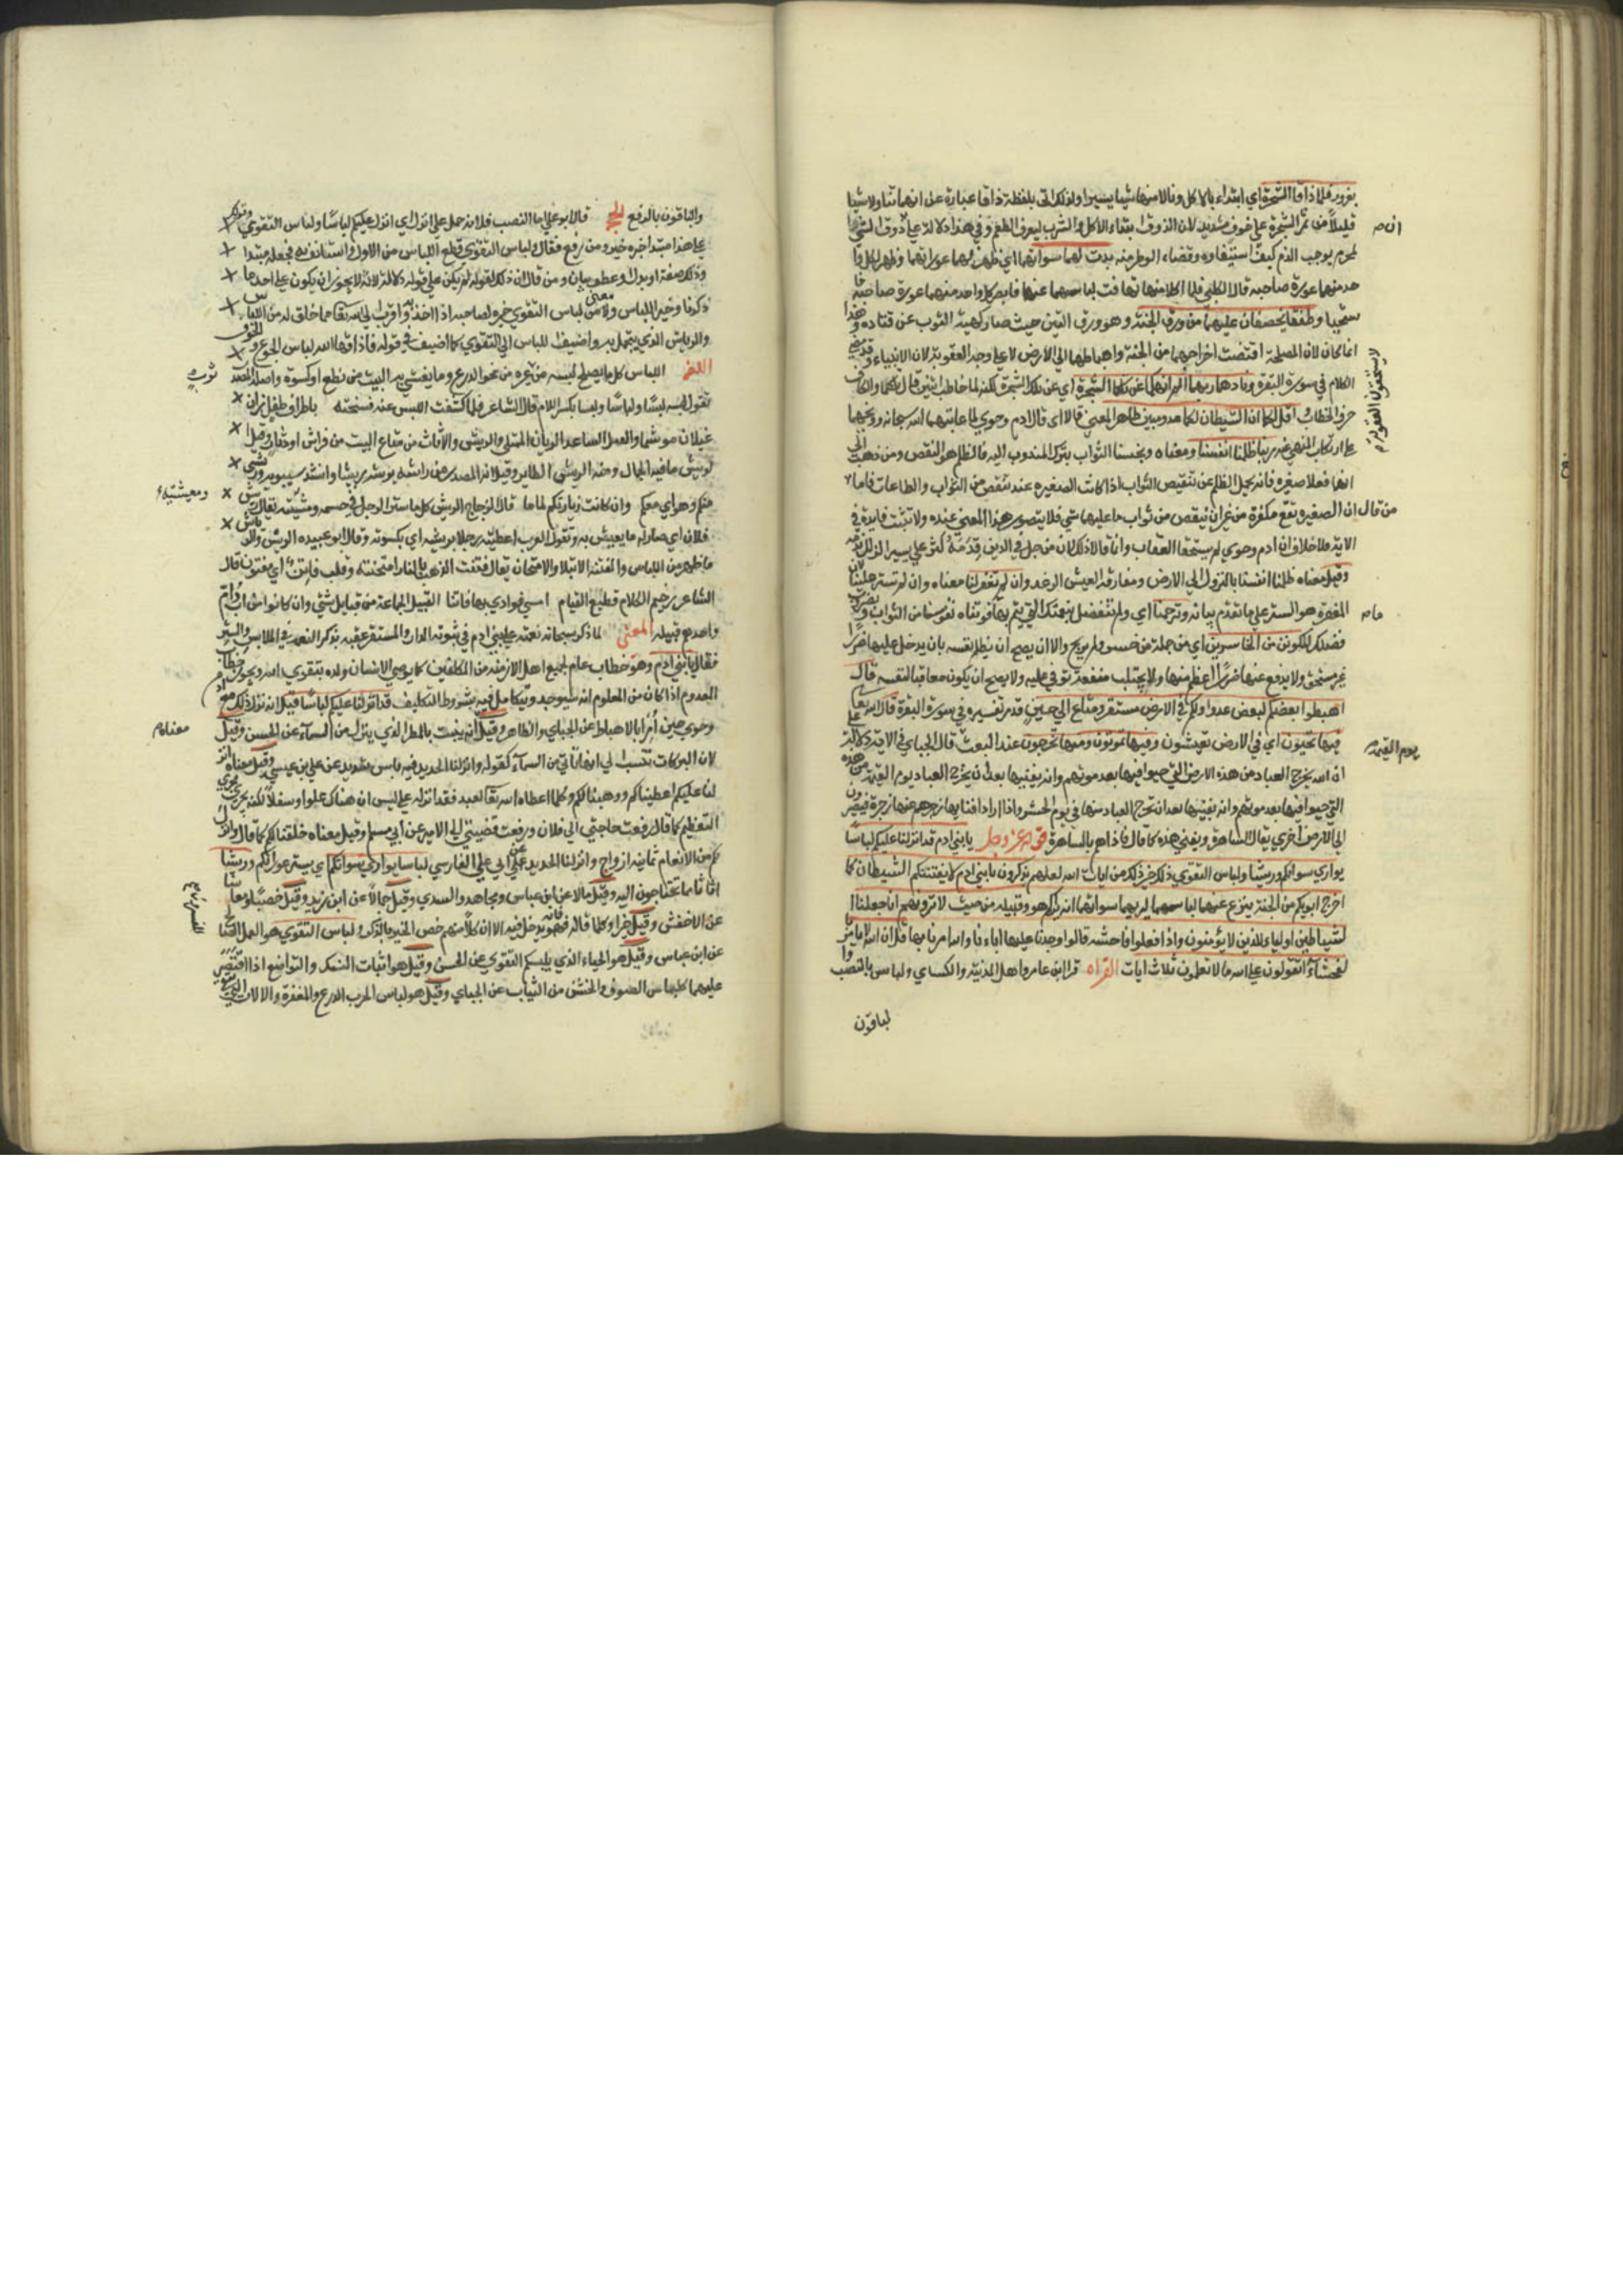 بغرور فلما ذاقا الشجرة اي ابتداء بالاكل ونالا منها شيئا يسيرا ولذلك اتى بلفظة ذاقا عبارة عن انهما تناولا شيئا
قليلا من ثمر الشجرة على خوف شديد لان الذوق ابتداء الاكل والشرب ليعرف الطعم وفي هذا دلالة على ان ذوق الشئ
المحرم يوجب الذم فكيف استيفاوه وقضاء الوطر منه بدت لهما سواتهما اي ظهرت لهما عوراتهما وظهر لكل وا
حد منهما عورة صاحبه قال الكلبي فلما اكلا منها تهافت لباسهما عنهما فابصر كل واحد منهما عورة صاحبه فا
ستحيا وطفقا يخصفان عليهما من ورق الجنة وهو ورق التين حيث صار كهيئة الثوب عن قتادة وهذا
انما كان لان المصلحة اقتضت اخراجهما من الجنة واهباطهما الى الارض لا على وجه العقوبة لان الانبياء وقد مضى
لا يستحقون العقوبة
الكلام في سورة البقرة وناداهما ربهما الم انهكما عن تلكما الشجرة اي عن تلك الشجرة لكنه لما خاطب اثنين قال تلكما والكاف
حرف الخطاب واقل لكما ان الشيطان لكما عدو مبين ظاهر المعنى قالا اي قال ادم وحوى لما عاتبهما الله سبحانه ووبخهما
على ارتكاب النهي عنه ربنا ظلمنا انفسنا ومعناه وبخسنا الثواب بترك المندوب اليه فالظلم هو النقص ومن ذهب الى
انهما فعلا صغيرة فانه يحمل الظلم عن تنقيص الثواب اذا كانت الصغيرة عنده تنقص من الثواب والطاعات فاما
من قال ان الصغيرة تقع مكفرة من غير ان ينقص من ثواب فاعليها شئ فلا يتصور هذا المعنى عنده ولا تثبت فايدة في
الاية ولا خلاف ان ادم وحوى لم يستحقا العقاب وانما قالا ذلك لان من جل في الدين قدمه كثر على يسير الزلل ندمه
وقيل معناه ظلمنا انفسنا بالنزول الى الارض ومفارقة العيش الرغد وان لم تغفر لنا معناه وان لم تستر علينا لان
المغفرة هو الستر على ما تقدم بيانه وترحمنا اي ولم تتفضل بنعمتك التي يتم بها ما فوتناه نفوسنا من الثواب وبضروب
فضلك لنكونن من الخاسرين اي من جملة من خسر ولم يربح والانسان يصح ان يظلم نفسه بان يدخل عليها ضررا
غير مستحق ولا يدفع عنها ضررا اعظم منها ولا يجتلب منفعة توفي عليه ولا يصح ان يكون معاقبا لنفسه قال
اهبطوا بعضكم لبعض عدو ولكم في الارض مستقر ومتاع الى حين قد مر تفسيره في سورة البقرة قال الله تعالى
فيها تحيون اي في الارض تعيشون وفيها تموتون ومنها تخرجون عند البعث قال الجبائي في الاية دلالة على
يوم القيمة
ان الله يخرج العباد من هذه الارض التي حيوا فيها بعد موتهم وانه يفنيها بعد ان يخرج العباد يوم القيمة من هذه
التي حيوا فيها بعد موتهم وانه يفنيها بعد ان يخرج العباد منها في يوم الحشر واذا اراد افناءها زجرهم عنها زجرة فيصيرون
الى الارض اخرى يقال الساهرة ويفني هذه كما قال فاذا هم بالساهرة قوله عز وجل يا بني ادم قد انزلنا عليكم لباسا
يواري سواتكم وريشا ولباس التقوى ذلك خير ذلك من ايات الله لعلهم يذكرون يا بني ادم لا يفتننكم الشيطان كما
اخرج ابويكم من الجنة ينزع عنهما لباسهما ليريهما سواتهما انه يراكم هو وقبيله من حيث لا ترونهم انا جعلنا ا
لشياطين اولياء للذين لا يؤمنون واذا فعلوا فاحشة قالوا وجدنا عليها اباءنا والله امرنا بها قل ان الله لا يامر
بالفحشاء اتقولون على الله ما لا تعلمون ثلاث ايات القراه قرا ابن عامر واهل المدينة والكسائي ولباس بالنصب
لباقون
والباقون بالرفع الحجة قال ابو علي اما النصب فلانه حمل على انزل اي انزل عليكم لباسا ولباس التقوى وقوله ذلك
على هذا مبتدا خبره خير ومن رفع فقال ولباس التقوى قطع اللباس من الاول واستانف به فجعله مبتدا
وذلك صفة او بدل او عطف بيان ومن قال ان ذلك لغو لم يكن على قوله دلالة لانه لا يجوز ان يكون على احد ما
ذكرنا وخير اللباس والمعنى لباس التقوى خير لصاحبه اذا اخذ به واقرب الى الله تعالى مما خلق له من اللباس
والرياش الذي يتجمل به واضيف اللباس الى التقوى كما اضيف في قوله فاذاقها الله لباس الجوع والخوف
اللغه اللباس كل ما يصلح للبسه من غيره من نحو الدرع وما يغشى به البيت من نطع او كسوة واصله المصدر
ثوب
تقول لبسه لبسا ولباسا ولبسا بكسر اللام قال الشاعر فلما كشفت اللبس عنه مسحنه باطراف طفل زان
غيلا موشما والغيل الساعد الريان الممتلي والريش والاثاث من متاع البيت من فراش او دثار وقيل
الريش ما فيه الجمال ومنه الريش الطاير وقيل انه المصدر من راشه يريشه ريشا وانشد سيبويه وريشي
منكم وهواي معكم وان كانت زيارتكم لماما قال الزجاج الريش كل ما ستر الرجل في جسمه ومعيشته يقال تريش
ومعيشته
فلان اي صار له ما يعيش به وتقول العرب اعطيته رحلا بريشه اي بكسوته وقال ابو عبيده الريش والرياش
ما ظهر من اللباس والفتنة الابتلا والامتحان يقال فتنت الذهب بالنار امتحنته وقلب فاتن اي مفتون قال
الشاعر رخيم الكلام قطيع القيام امسى فوادي بها فاتنا القبيل الجماعة من قبايل شتى وان كانوا من اب وام
واحد فهو قبيله المعنى لما ذكر سبحانه نعمته على بني ادم في تبوئه الدار والمستقر عقبه بذكر النعمة في الملابس والستر
فقال يا بني ادم وهو خطاب عام لجميع اهل الازمنة من المكلفين كما يوصي الانسان ولده بتقوى الله ويجوز خطاب
المعدوم اذا كان من المعلوم انه سيوجد ويتكامل فيه بشروط التكليف قد انزلنا عليكم لباسا قيل انه نزل ذلك مع ادم
وحوى حين امرا بالاهباط عن الجبائي والظاهر وقيل انه ينبت بالمطر الذي ينزل من السماء عن الحسن وقيل
معناه
لان البركات تنسب الى انها تاتي من السماء كقوله وانزلنا الحديد فيه باس شديد عن علي بن عيسى وقيل معناه انز
لنا عليكم اعطيناكم ووهبنا لكم وكلما اعطاه الله تعالى لعبد فقد انزله عليه ليس ان هناك علوا وسفلا لكنه يجري مجرى
التعظيم كما قال رفعت حاجتي الى فلان ورفعت قضيتي الى الامير عن ابي مسلم وقيل معناه خلقنا لكم كما قال وانزل
لكم من الانعام ثمانية ازواج وانزلنا الحديد عن ابي علي الفارسي لباسا يواري سواتكم اي يستر عوراتكم وريشا
اثاثا مما تحتاجون اليه وقيل مالا عن ابن عباس ومجاهد والسدي وقيل جمالا عن ابن زيد وقيل خصبا ومعاشا
عن الاخفش وقيل خيرا وكلما قاله المفسرون فانه يدخل فيه الا ان كلا منهم خص الخير بالذكر ولباس التقوى هو العمل الصالح
عن ابن عباس وقيل هو الحياء الذي يلبسكم التقوى عن الحسن وقيل هو اثبات النسك والتواضع اذا اقتصر
عليهما كلباس الصوف والخشن من الثياب عن الجبائي وقيل هو لباس الحرب الدرع والمغفرة والالات التي